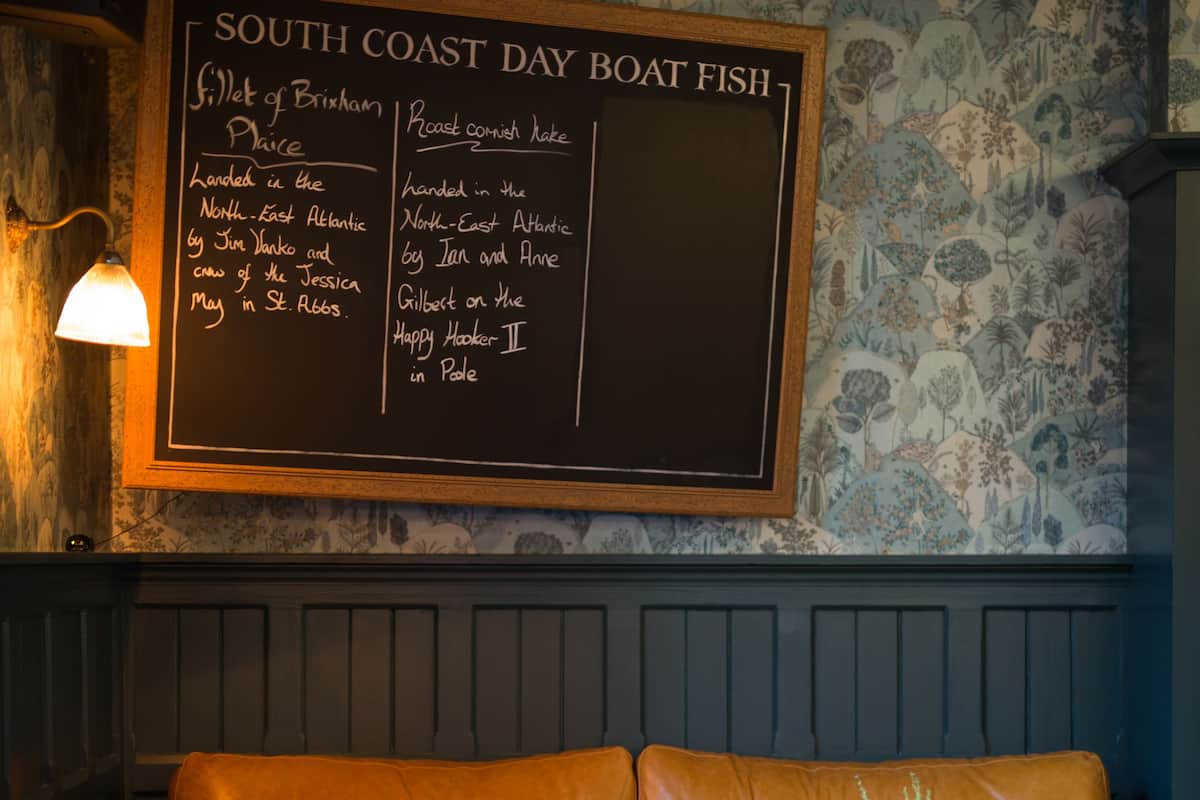 SOUTH COAST DAY BOAT FISH
fillet of Brixham
Plaice
Landed in the
North-East Atlantic
by Jim Vanko and
crew of the Jessica
May in St. Abbs.
Roast cornish hake
Landed in the
North-East Atlantic
by Ian and Anne
Gilbert on the
Happy Hooker II
in Poole